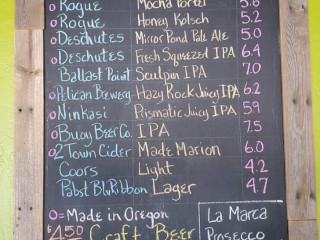 o Rogue Mocha Porter 5.8
o Rogue Honey Kolsch 5.2
o Deschutes Mirror Pond Pale Ale 5.0
o Deschutes Fresh Squeezed IPA 6.4
Ballast Point Sculpin IPA 7.0
o Pelican Brewery Hazy Rock Juicy IPA 6.2
o Ninkasi Prismatic Juicy IPA 5.9
o Buoy Beer Co. IPA 7.5
o 2 Town Cider Made Marion 6.0
Coors Light 4.2
Pabst Blu Ribbon Lager 4.7
o = Made in Oregon
$4.50 Craft Beer
La Marca
Prosecco